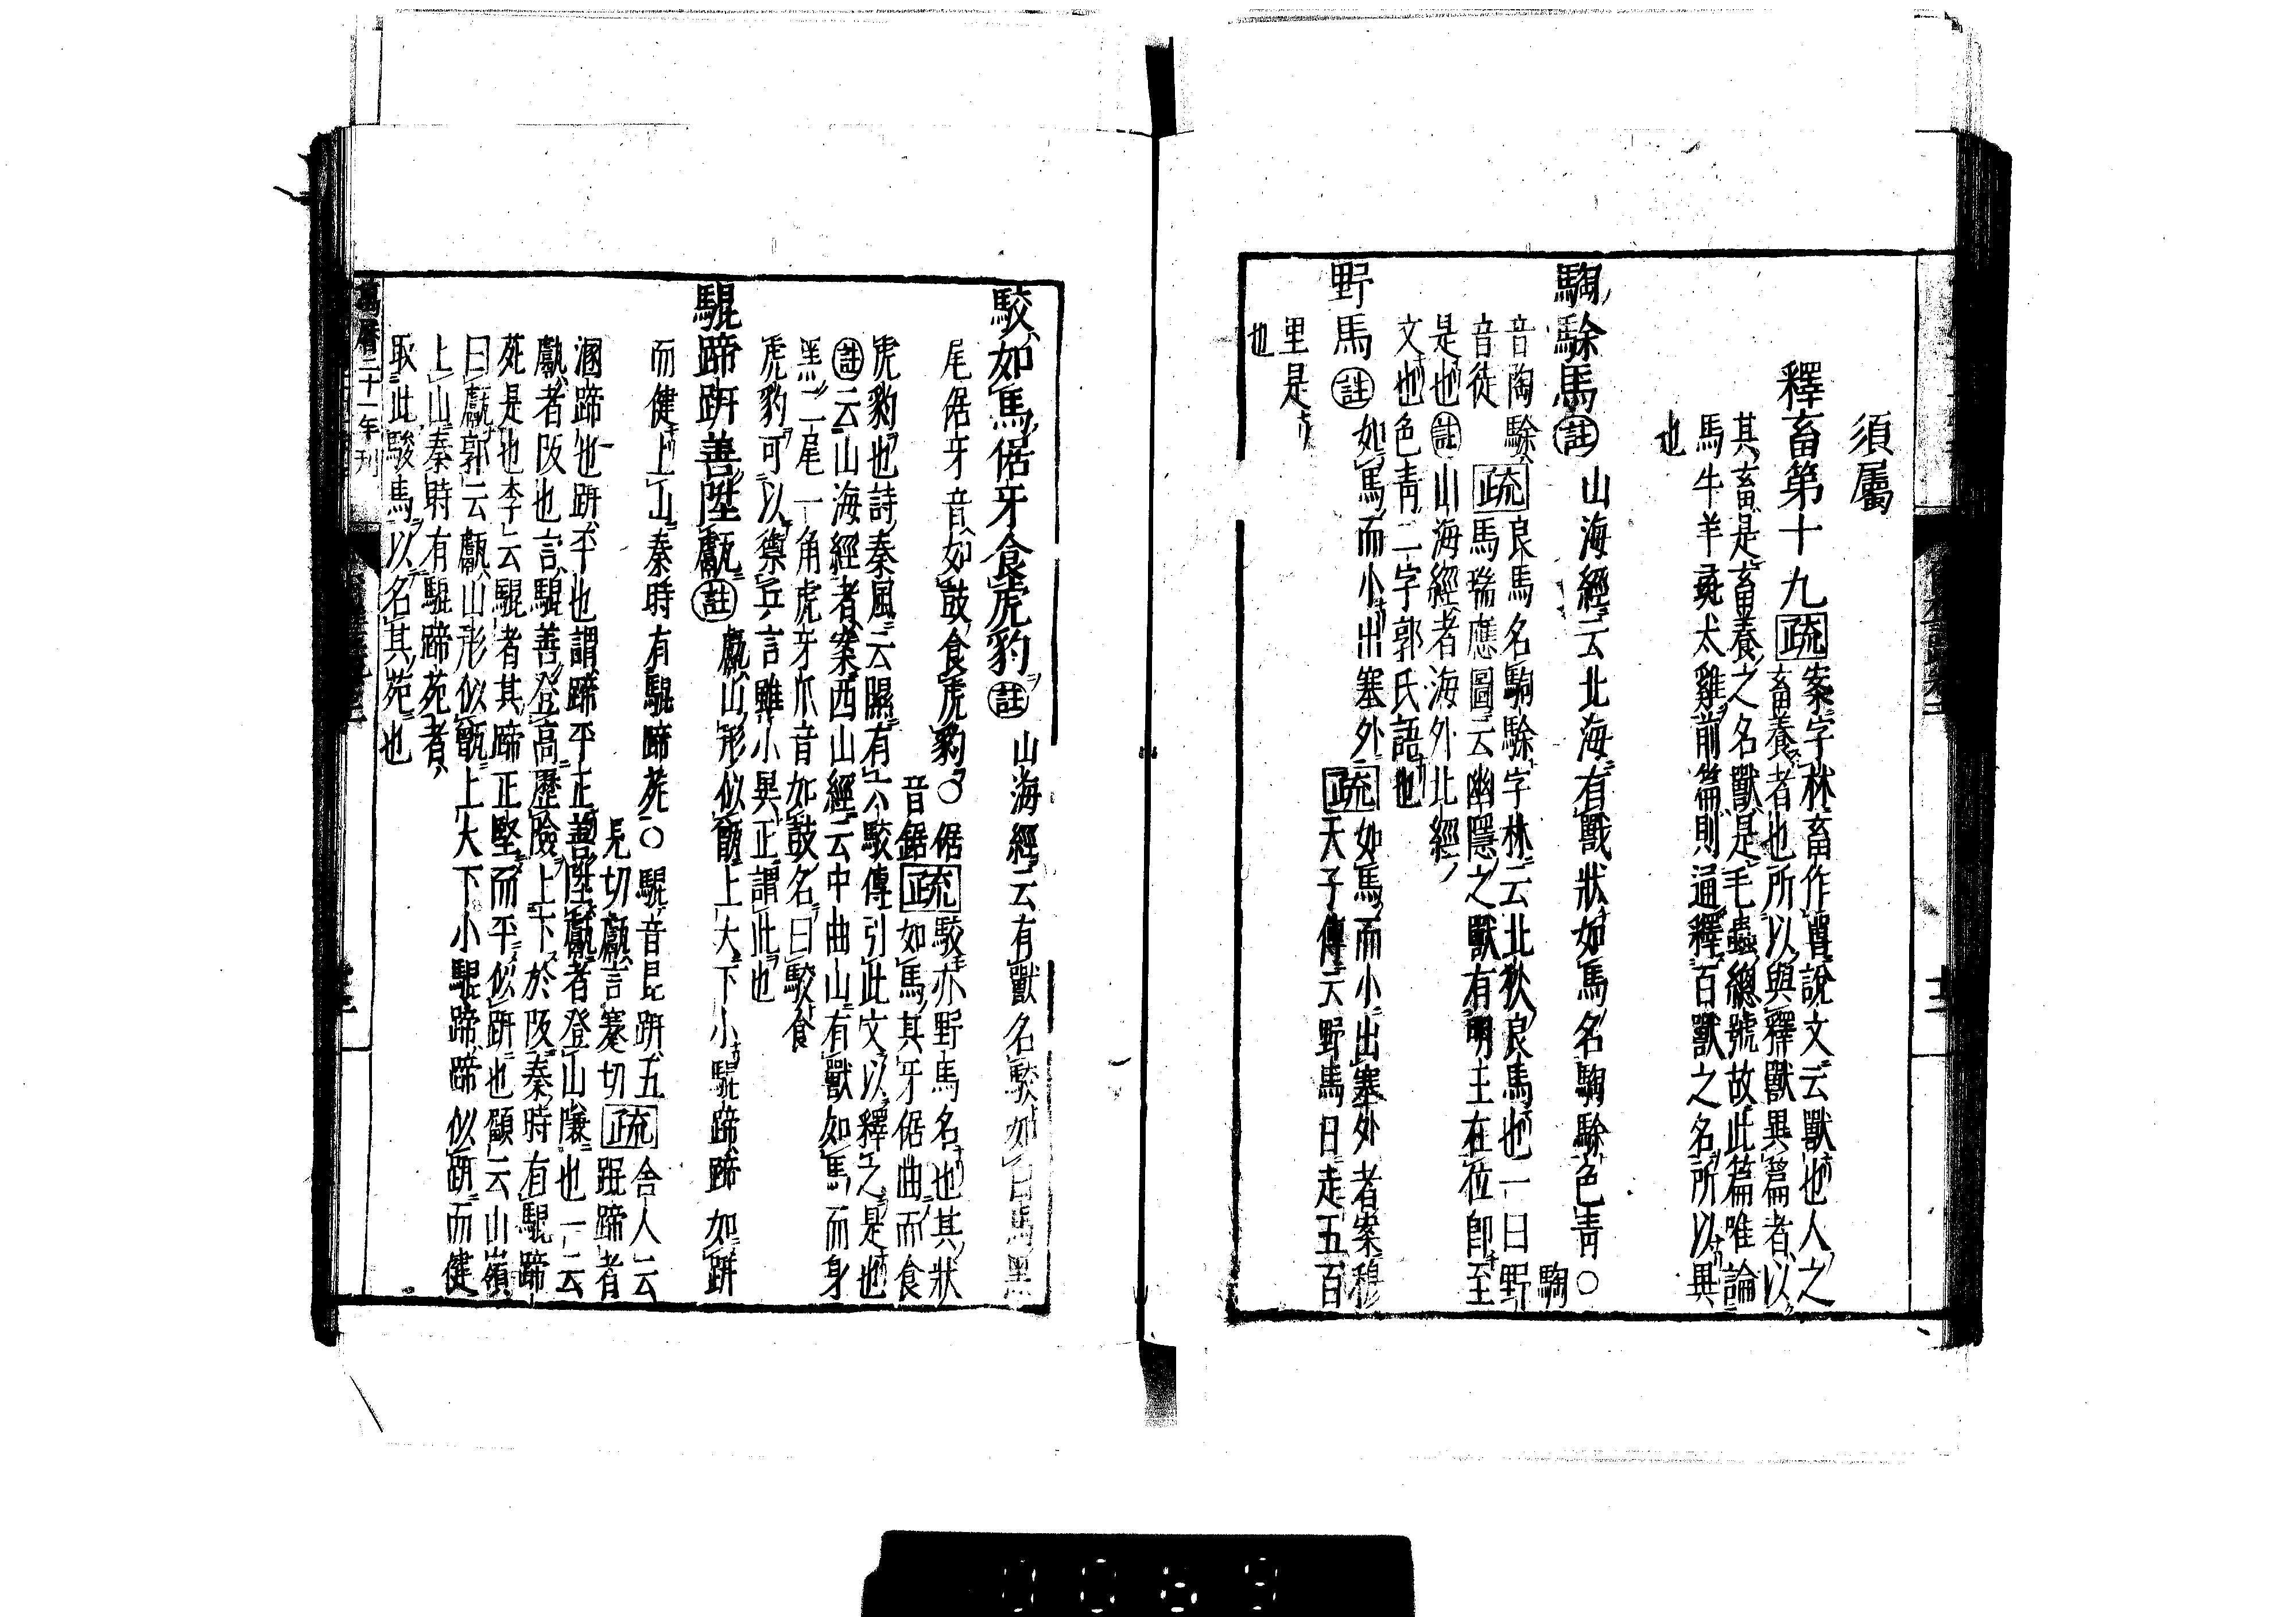 須屬
釋畜第十九疏案字林畜作嘼說文云獸也人之
畜養者也所以與釋獸異篇者以
其畜是畜養之名獸是毛蟲總號故此篇唯論
馬牛羊彘犬雞前篇則通釋百獸之名所以異
也
騊駼馬註山海經云北海有獸狀如馬名騊駼色青○
騊
音陶駼疏良馬名騊駼字林云北狄良馬也一曰野
音徒馬瑞應圖云幽隱之獸有明王在位即至
是也註山海經者海外北經
文也色青二字郭氏語也
野馬註如馬而小出塞外疏如馬而小出塞外者案穆
天子傳云野馬日走五百
里是
也
駮如馬倨牙食虎豹註山海經云有獸名駮如白馬黑
尾倨牙音如鼓食虎豹○倨音鋸疏駮亦野馬名也其狀
如馬其牙倨曲而食
虎豹也詩秦風云隰有六駮傳引此文以釋之是也
註云山海經者案西山經云中曲山有獸如馬而身
黑二尾一角虎牙爪音如鼓名曰駮食
虎豹可以禦兵言雖小異正謂此也
騉蹄趼善陞甗註甗山形似甑上大下小騉蹄蹄如趼
而健上山秦時有騉蹄苑○騉音昆趼五
見切甗言蹇切疏舍人云
騉蹄者
溷蹄也趼平也謂蹄平正善陞甗者登山隒也一云
甗者阪也言騉善登高歷險上下於阪秦時有騉蹄
苑是也李云騉者其蹄正堅而平似趼也顧云山嶺
曰甗郭云甗山形似甑上大下小騉蹄蹄似趼而健
上山秦時有騉蹄苑者
取此駿馬以名其苑也
萬曆二十一年刊